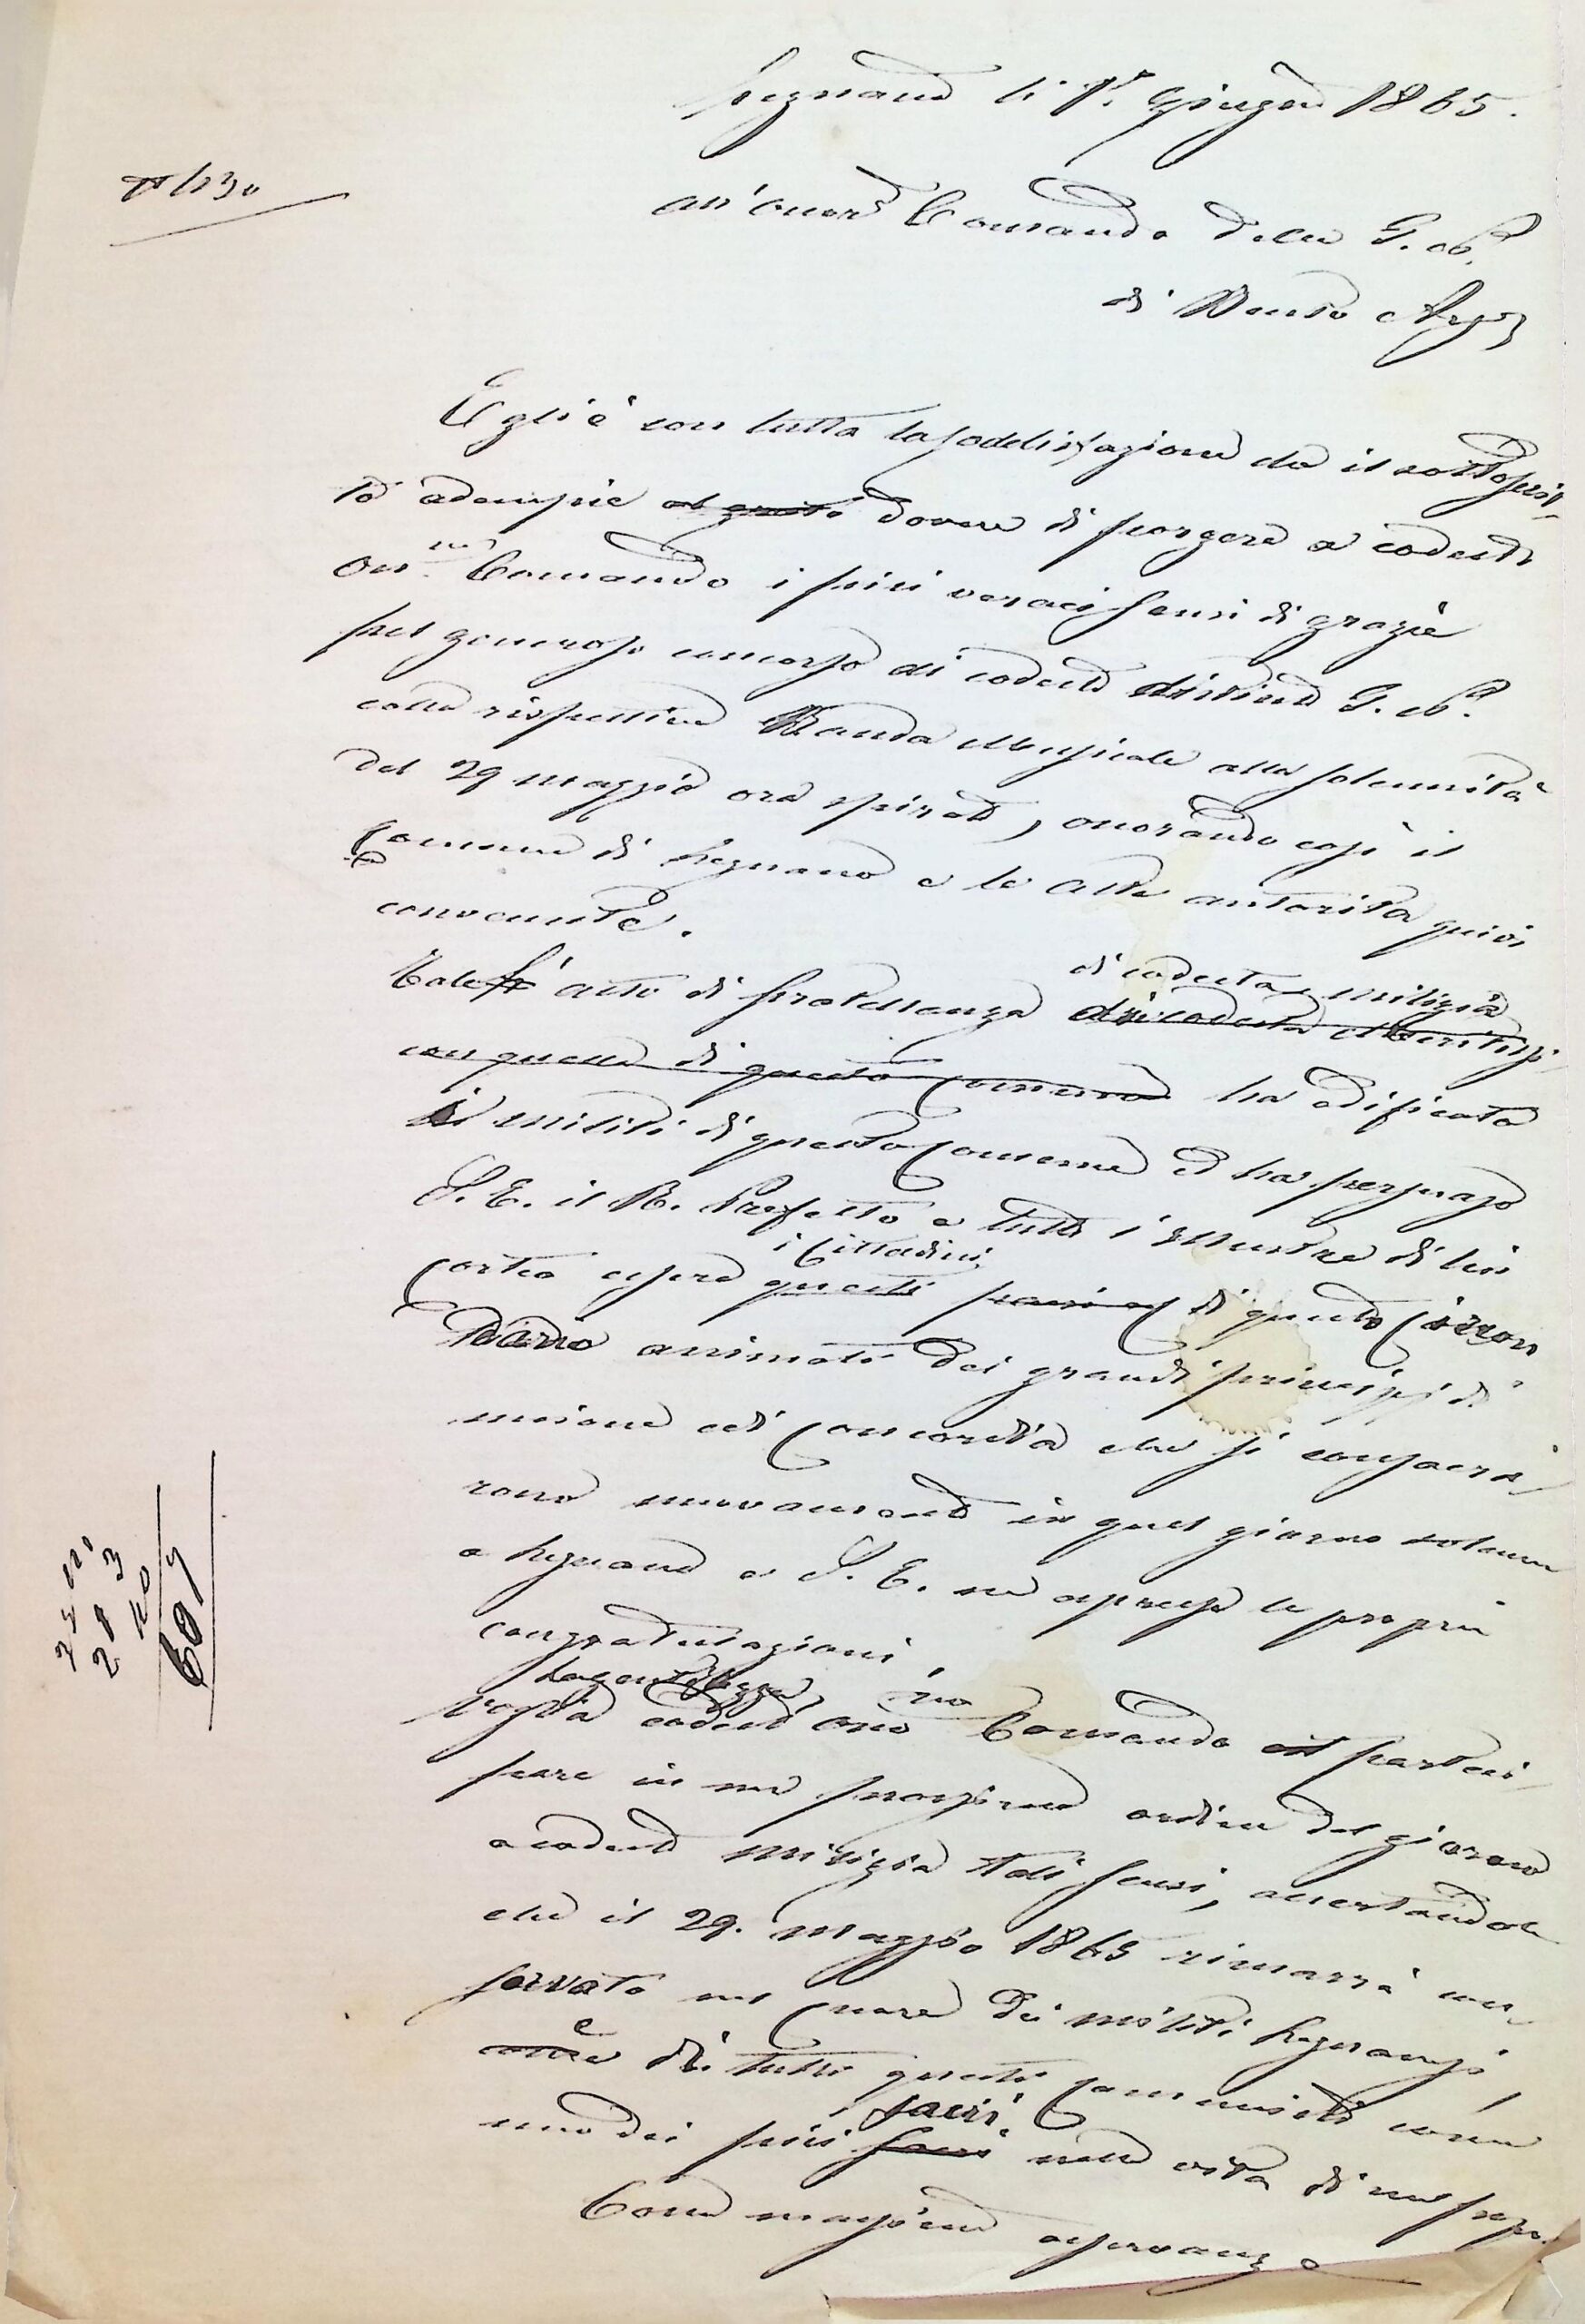 Legnano li 1° Giugno 1865.
N 1130
All'onor. Comando della G. N.
di Busto Arsiz
Egli è con tutta la soddisfazione che il sottoscrit-
to adempie al grato dovere di porgere a codesto
On.mo Comando i più veraci sensi di grazie
pel generoso concorso di codesta distinta G. N.
colla rispettiva Banda Musicale alla solennità
del 29 maggio ora spirato, onorando così il
Comune di Legnano e le alte autorità quivi
convenute.
di codesta milizia
Tale atto di fratellanza di codesta
con quella di questo Comune ha edificato
i militi di questo Comune ed ha persuaso
S. E. il R. Prefetto e tutto l'illustre di lui
i Cittadini
Corteo essere questi paesi di questo Circon
dario animati dei grandi principj di
unione e di Concordia che si consacra
rono nuovamente in quel giorno solenne
a Legnano e S. E. ne espresse le proprie
congratulazioni.
la gentilezza
Voglia codesto ono mo Comando parteci
pare in un prossimo ordine del giorno
a codesta milizia tali sensi, accertandola
che il 29. maggio 1865 rimarrà con
servato nel cuore dei militi Legnanesi,
e
come di tutti questi Comunisti come
sacri
uno dei più sacri nella vita di un popo.
Con massima osservanza
25 10
28 3
20
609